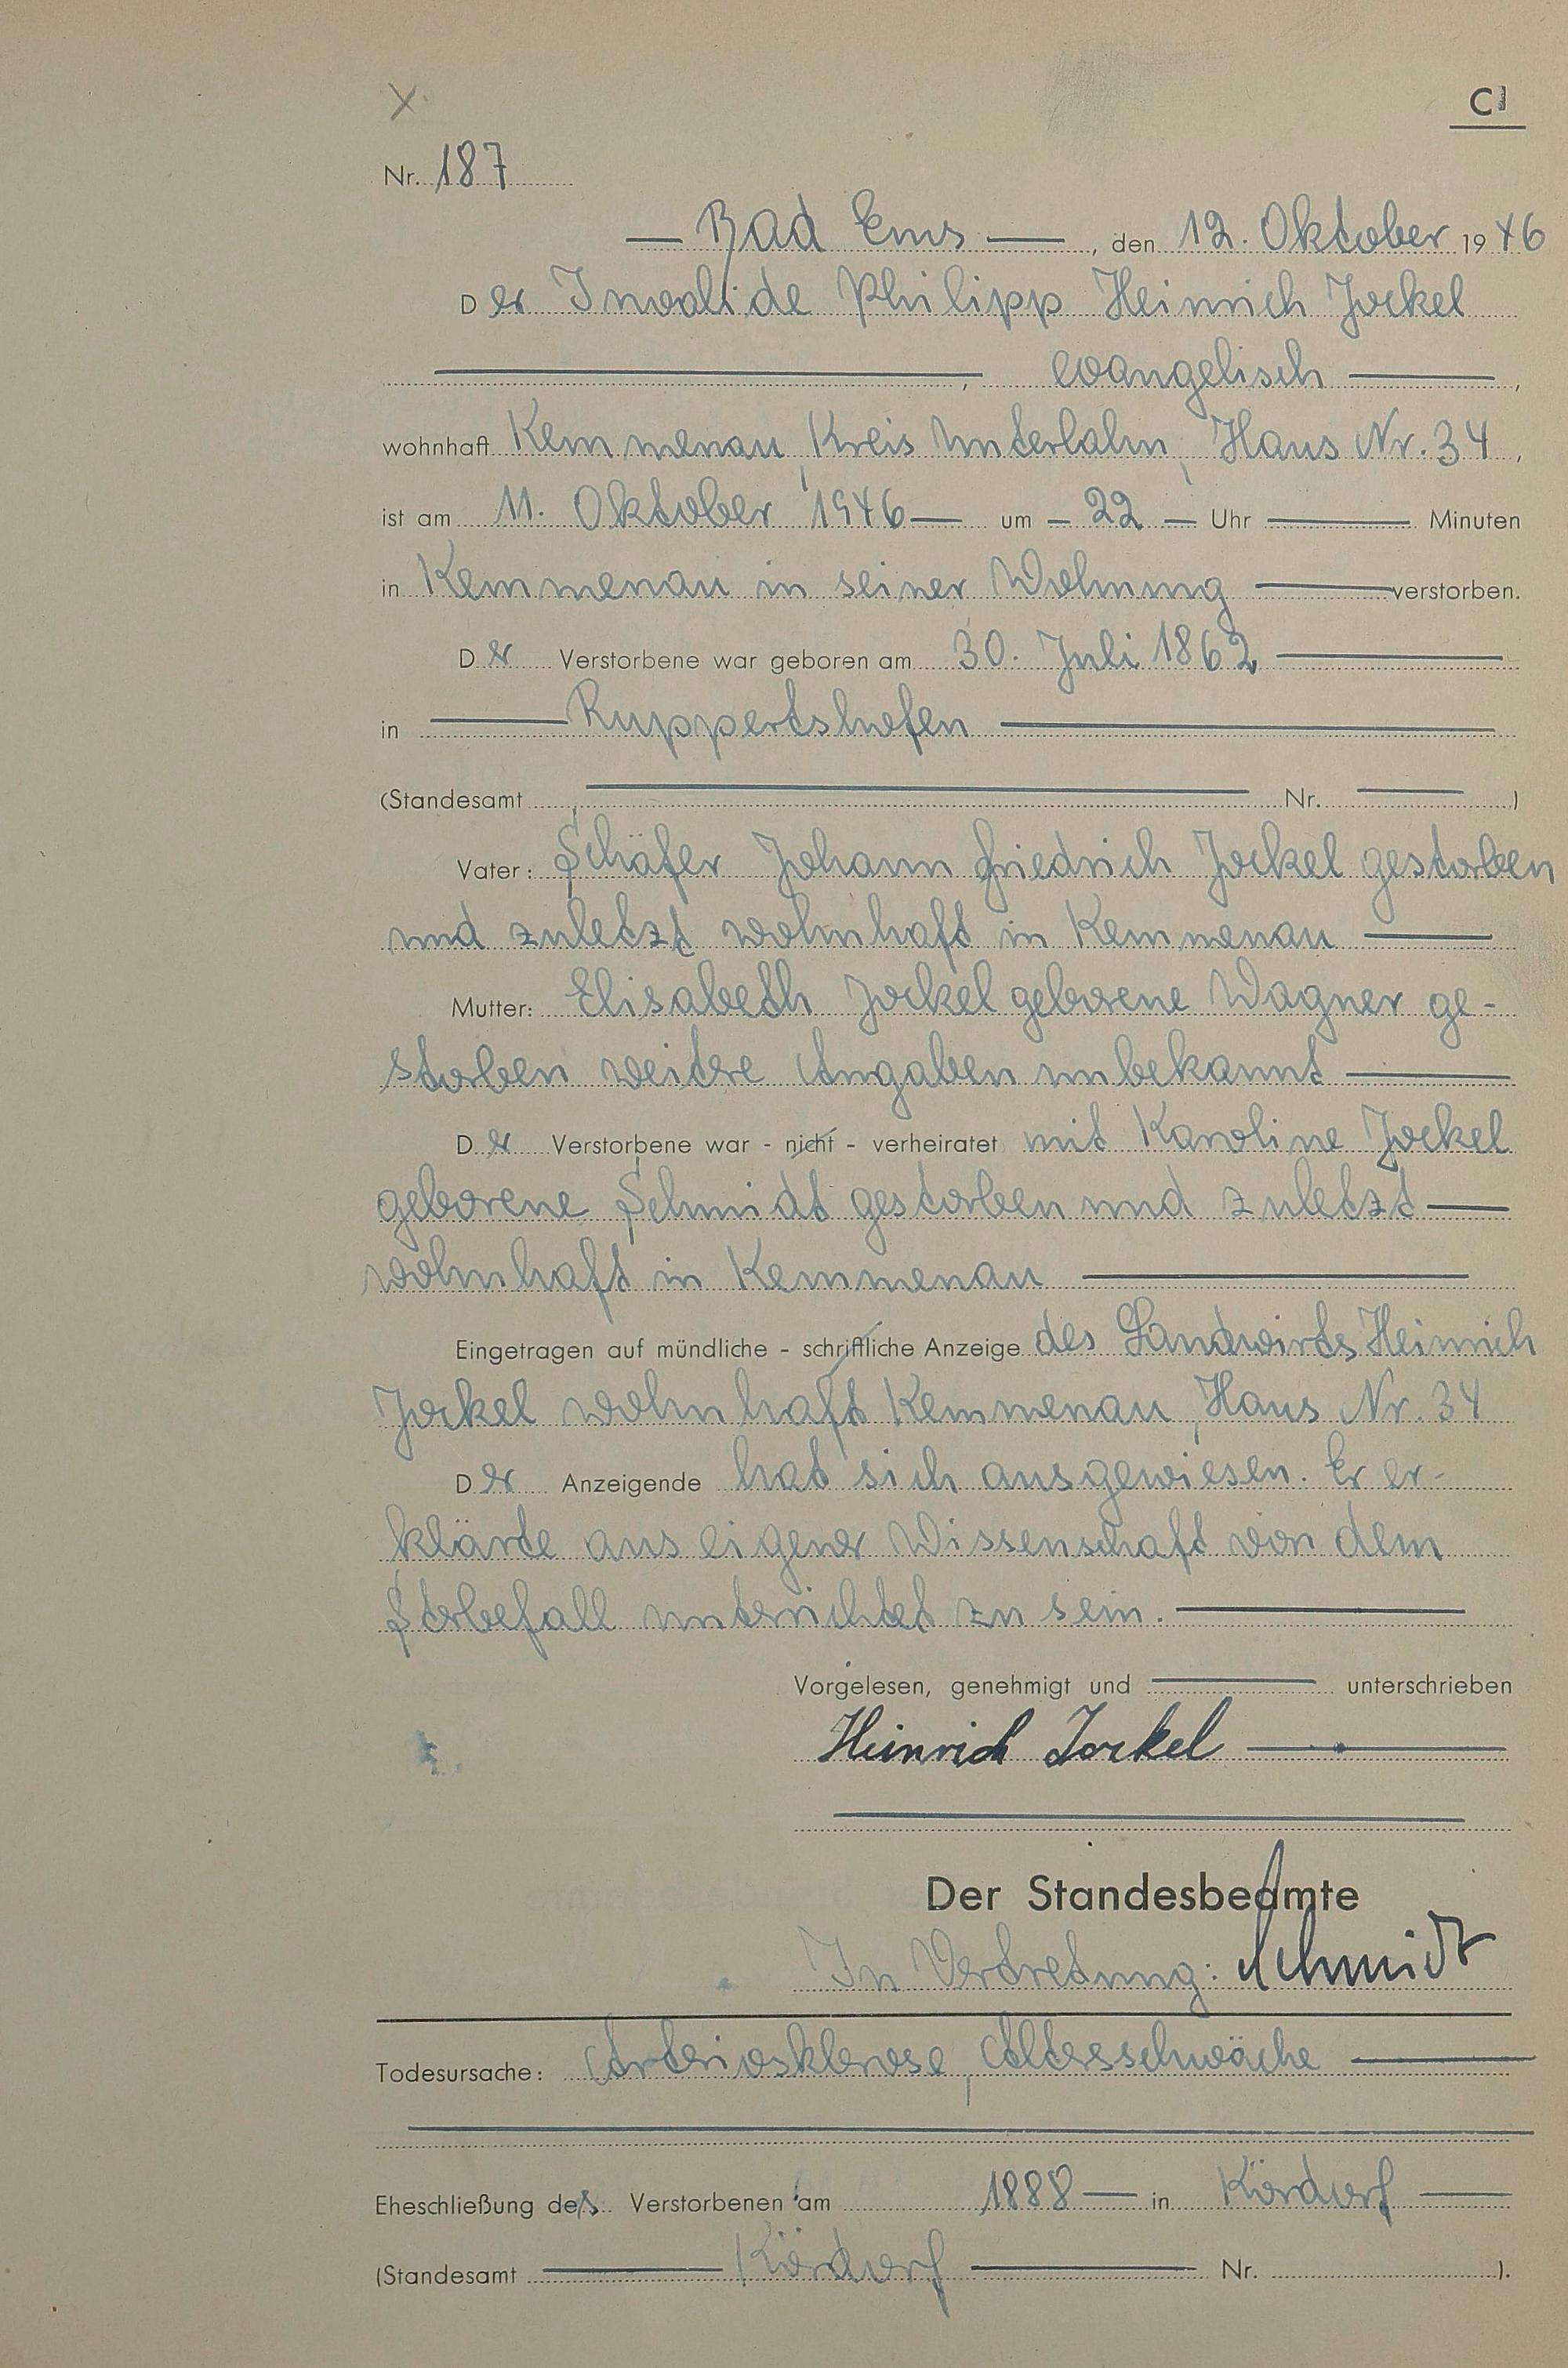 X.
C1
Nr. 187
— Bad Ems —, den 12. Oktober 1946
Der Invalide Philipp Heinrich Jockel
———, evangelisch ———,
wohnhaft Kemmenau, Kreis Unterlahn, Haus Nr. 34,
ist am 11. Oktober 1946 — um — 22 — Uhr ——— Minuten
in Kemmenau in seiner Wohnung ——— verstorben.
Der Verstorbene war geboren am 30. Juli 1862 ———
in ——— Ruppertshofen ———
(Standesamt ——— Nr. ——— )
Vater: Schäfer Johann Friedrich Jockel gestorben
und zuletzt wohnhaft in Kemmenau ———
Mutter: Elisabeth Jockel geborene Wagner ge-
storben weitere Angaben unbekannt ———
Der Verstorbene war - nicht - verheiratet mit Karoline Jockel
geborene Schmidt gestorben und zuletzt ——
wohnhaft in Kemmenau ———
Eingetragen auf mündliche - schriftliche Anzeige des Landwirts Heinrich
Jockel wohnhaft Kemmenau, Haus Nr. 34
Der Anzeigende hat sich ausgewiesen. Er er-
klärte aus eigener Wissenschaft von dem
Sterbefall unterrichtet zu sein. ———
Vorgelesen, genehmigt und ——— unterschrieben
Heinrich Jockel ———
Der Standesbeamte
In Vertretung: Schmidt
Todesursache: Arteriosklerose, Altersschwäche ———
Eheschließung des Verstorbenen am 1888 — in Kördorf ——
(Standesamt ——— Kördorf ——— Nr. ).